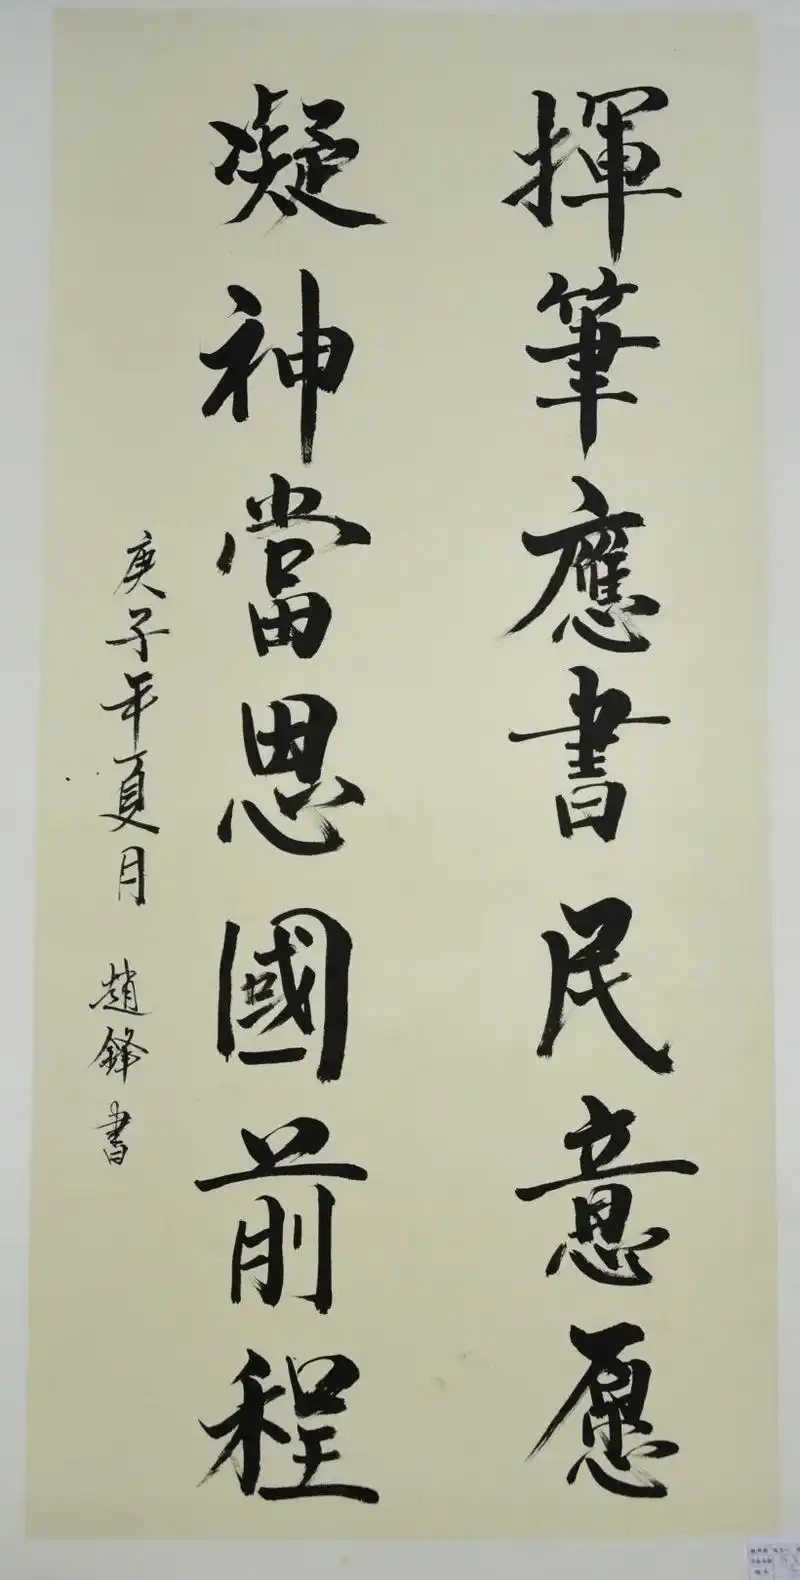 揮筆應書民意愿
凝神當思國前程
庚子年夏月 趙鋒書